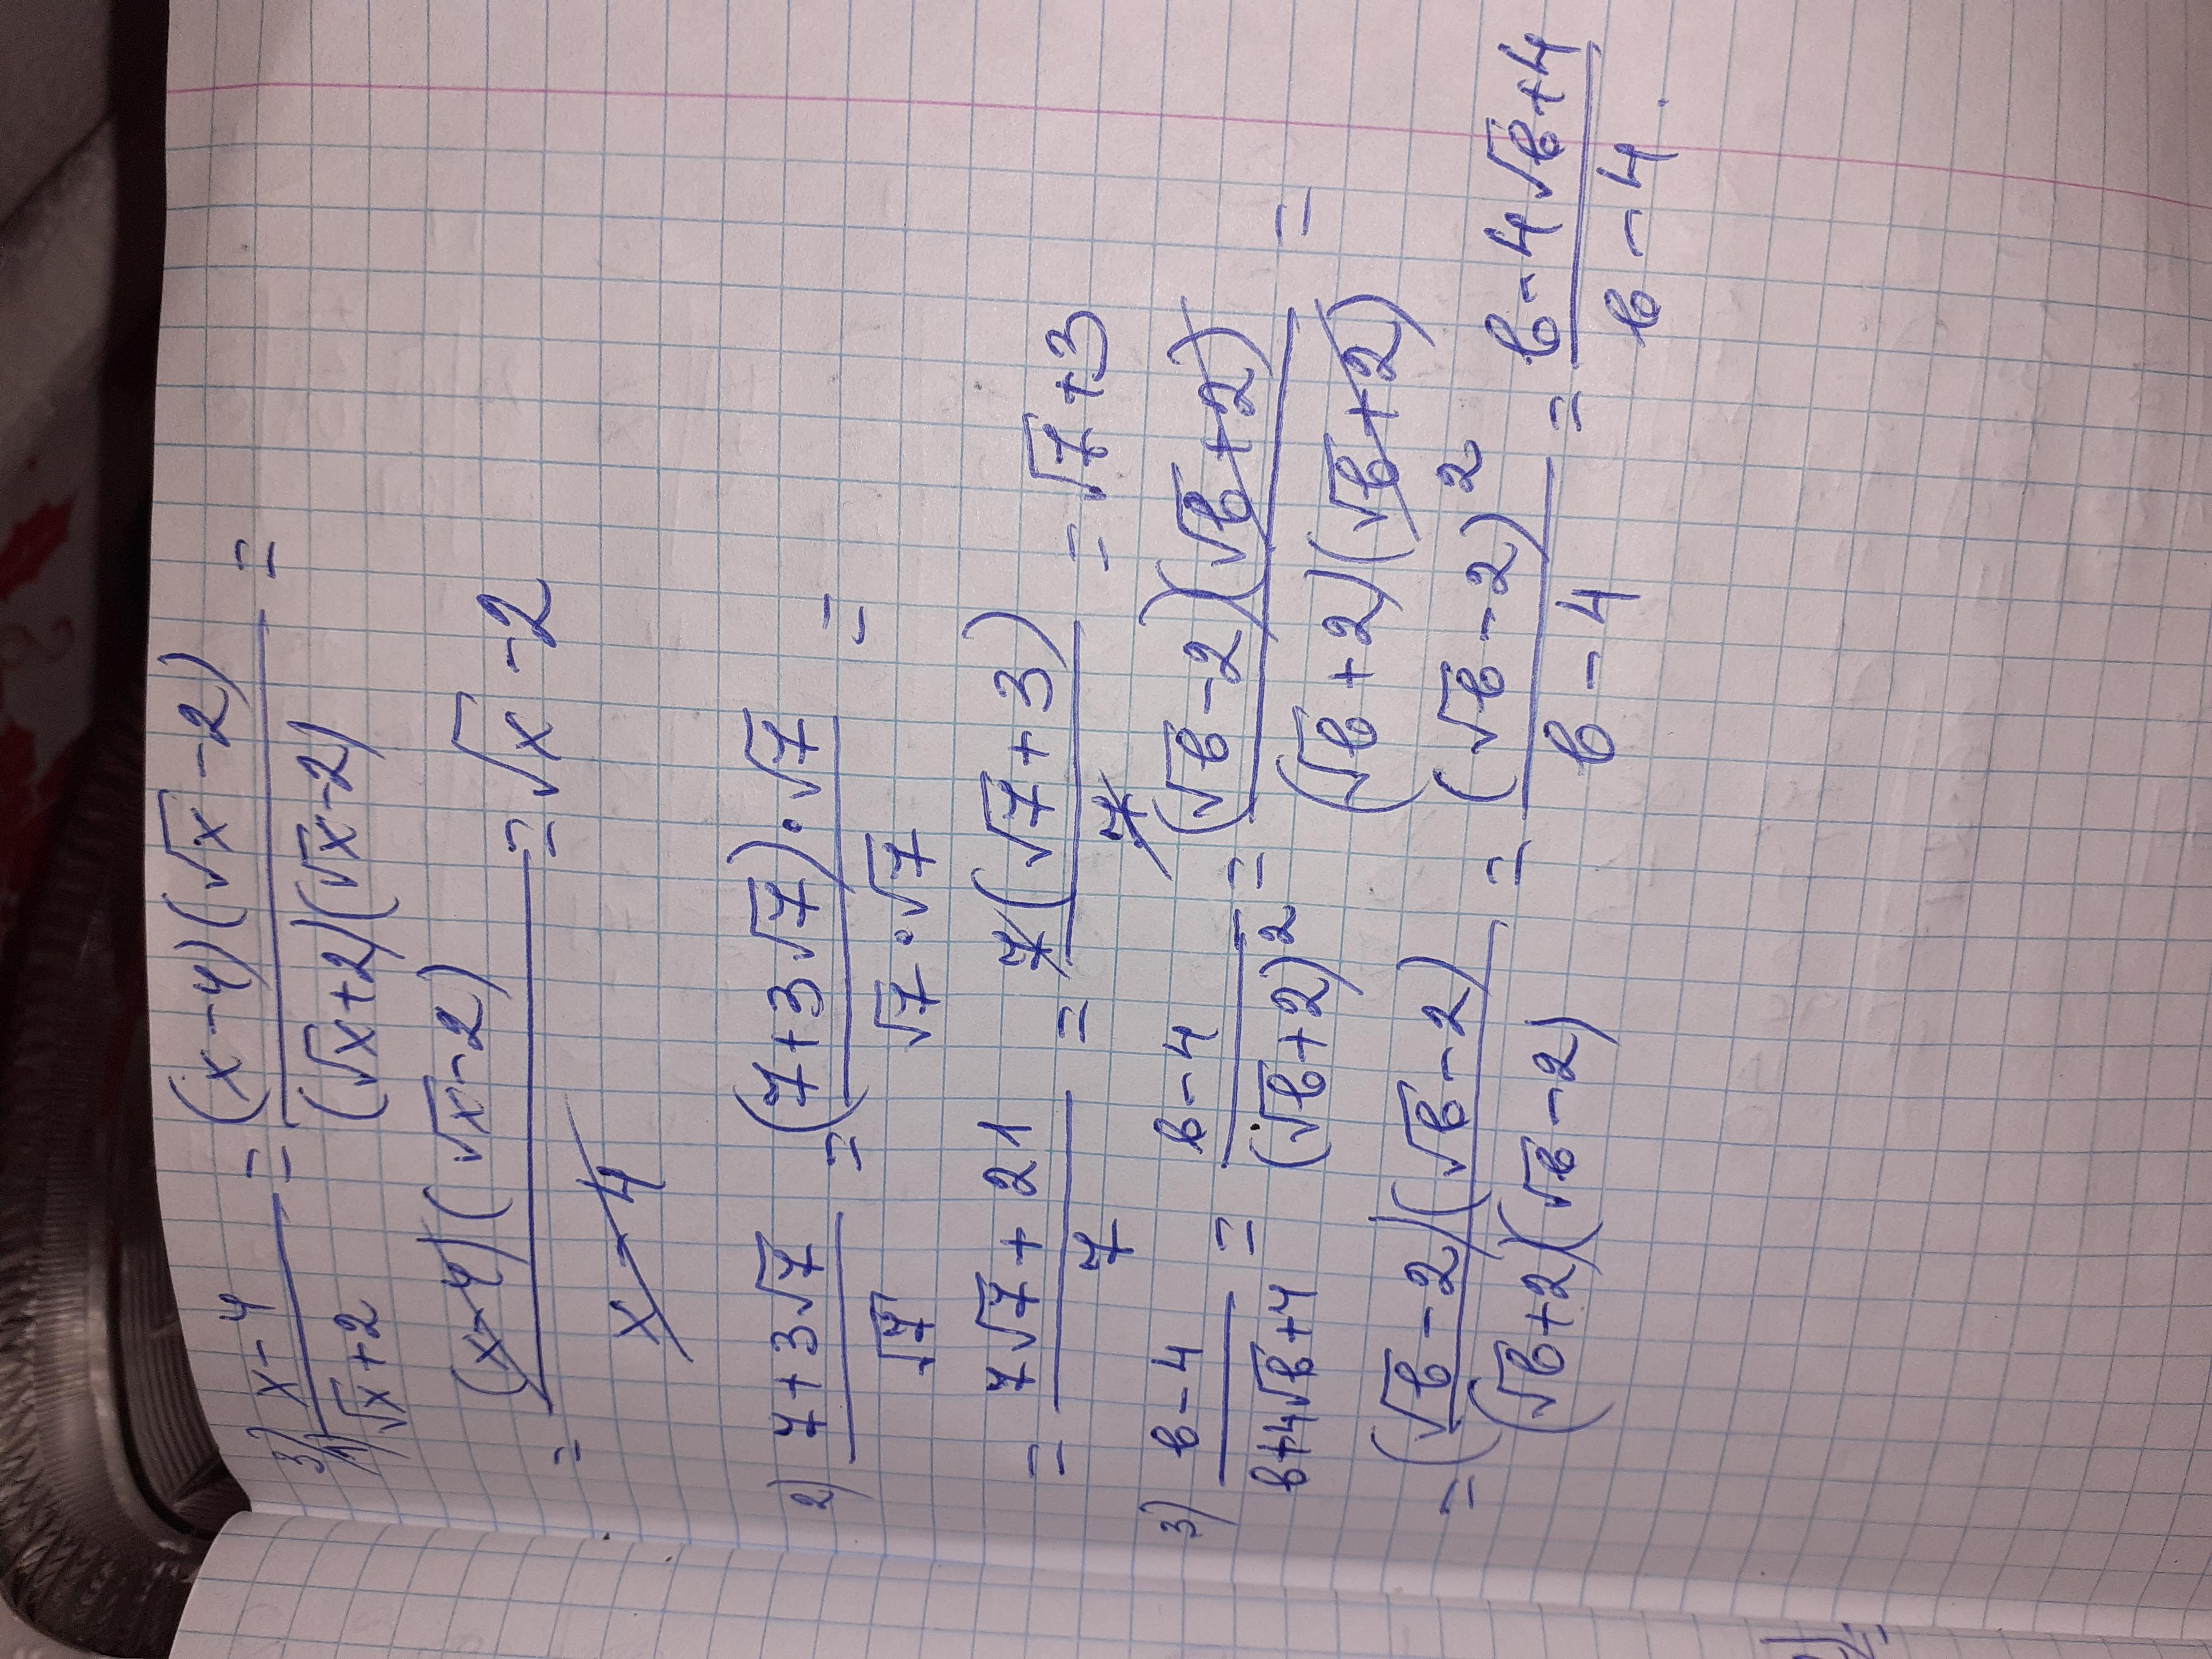 3) 1) (x-4)/(√x+2) = ((x-4)(√x-2))/((√x+2)(√x-2)) =
= ((x-4)(√x-2))/(x-4) = √x-2
2) (7+3√7)/√7 = ((7+3√7)·√7)/(√7·√7) =
= (7√7+21)/7 = (7(√7+3))/7 = √7+3
3) (b-4)/(b+4√b+4) = (b-4)/(√b+2)² = ((√b-2)(√b+2))/((√b+2)(√b+2)) =
= ((√b-2)(√b-2))/((√b+2)(√b-2)) = (√b-2)²/(b-4) = (b-4√b+4)/(b-4).